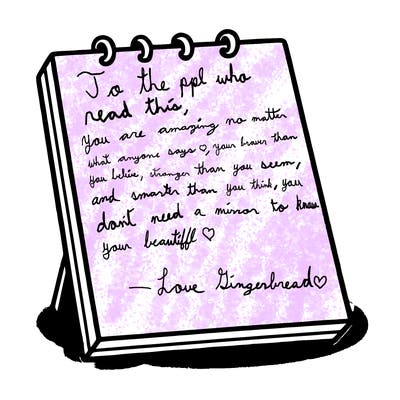 To the ppl who
read this,
you are amazing no matter
what anyone says ♡, your braver than
you belive, stronger than you seem,
and smarter than you think, you
don't need a mirror to know
your beautiffl ♡
—Love Gingerbread♡